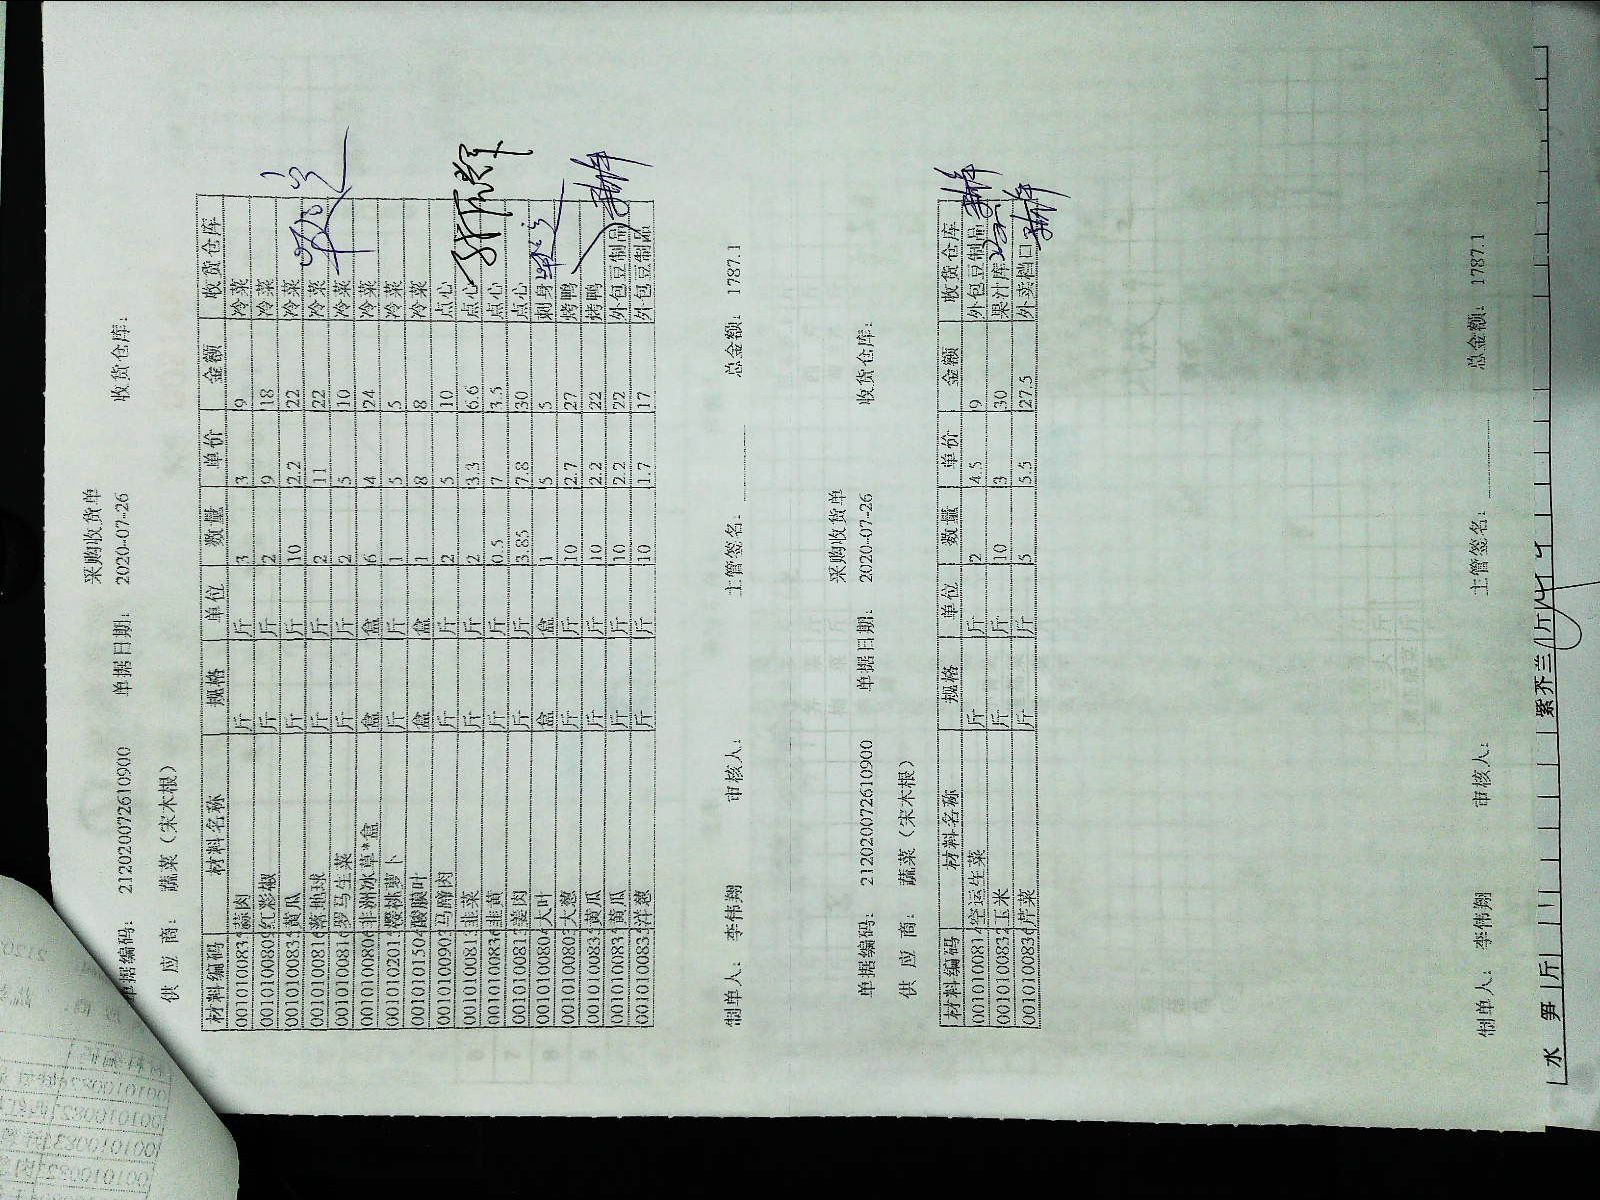 采购收货单
单据编码: 21202007261​0900 单据日期: 2020-07-26 收货仓库:
供 应 商: 蔬菜（宋木根）
材料编码 材料名称 规格 单位 数量 单价 金额 收货仓库
0010100083 蒜肉 斤 斤 3 3 9 冷菜
0010100809 红彩椒 斤 斤 2 9 18 冷菜
001010083 黄瓜 斤 斤 10 2.2 22 冷菜
001010081 落地球 斤 斤 2 11 22 冷菜
001010081 罗马生菜 斤 斤 2 5 10 冷菜
001010080 非洲冰草*盒 盒 盒 6 4 24 冷菜
001010201 樱桃萝卜 斤 斤 1 5 5 冷菜
001010150 酸膜叶 盒 盒 1 8 8 冷菜
001010090 马蹄肉 斤 斤 2 5 10 点心
001010081 韭菜 斤 斤 2 3.3 6.6 点心
001010083 韭黄 斤 斤 0.5 7 3.5 点心
001010081 姜肉 斤 斤 3.85 7.8 30 点心
001010080 大叶 盒 盒 1 5 5 刺身
001010080 大葱 斤 斤 10 2.7 27 烤鸭
001010083 黄瓜 斤 斤 10 2.2 22 烤鸭
001010083 黄瓜 斤 斤 10 2.2 22 外包豆制品
001010083 洋葱 斤 斤 10 1.7 17 外包豆制品
制单人: 李伟翔 审核人: 主管签名: 总金额: 1787.1
采购收货单
单据编码: 212020072610900 单据日期: 2020-07-26 收货仓库:
供 应 商: 蔬菜（宋木根）
材料编码 材料名称 规格 单位 数量 单价 金额 收货仓库
001010081 空运生菜 斤 斤 2 4.5 9 外包豆制品
001010083 玉米 斤 斤 10 3 30 果汁库
001010083 芹菜 斤 斤 5 5.5 27.5 外卖档口
制单人: 李伟翔 审核人: 主管签名: 总金额: 1787.1
水 笋 斤 紫芥兰 斤